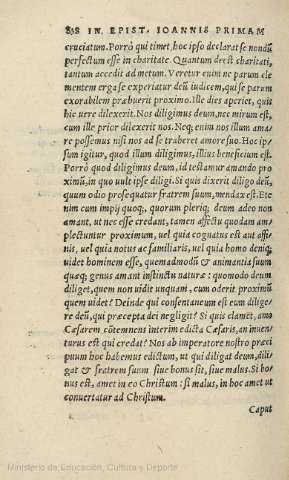 858 IN EPIST. IOANNIS PRIMAM
cruciatum. Porrò qui timet, hoc ipso declarat se nondũ
perfectum esse in charitate. Quantum deest charitati,
tantum accedit ad metum. Veretur enim ne parum ele
mens erga se experiatur deũ iudicem, qui se parum
exorabilem præbuerit proximo. Ille dies aperiet, quis
hic uere dilexerit. Nos diligimus deum, nec mirum est,
cum ille prior dilexerit nos. Neq; enim nos illum ama
re possemus nisi nos ad se traheret amore suo. Hoc ip-
sum igitur, quod illum diligimus, illius beneficium est.
Porrò quod diligimus deum, id testamur amando pro
ximũ, in quo uult ipse diligi. Si quis dixerit diligo deũ,
quum odio prosequatur fratrem suum, mendax est. Et
nim cum impij quoq;, quorum pleriq; deum adeo non
amant, ut nec esse credant, tamen affectu quodam am
plectuntur proximum, uel quia cognatus est aut affi-
nis, uel quia notus ac familiaris, uel quia homo deniq;
uidet hominem esse, quemadmodũ & animantia suum
quæq; genus amant instinctu naturæ: quomodo deum
diliget, quem non uidit unquam, cum oderit proximũ
quem uidet? Deinde qui consentaneum est eum dilige-
re deũ, qui præcepta dei negligit? Si quis clamet, amo
Cæsarem cõtemnens interim edicta Cæsaris, an inuen-
turus est qui credat? Nos ab imperatore nostro præci
puum hoc habemus edictum, ut qui diligat deum, dili
gat & fratrem suum siue bonus sit, siue malus. Si bo-
nus est, amet in eo Christum: si malus, in hoc amet ut
conuertatur ad Christum.
Caput
Ministerio de Educación, Cultura y Deporte